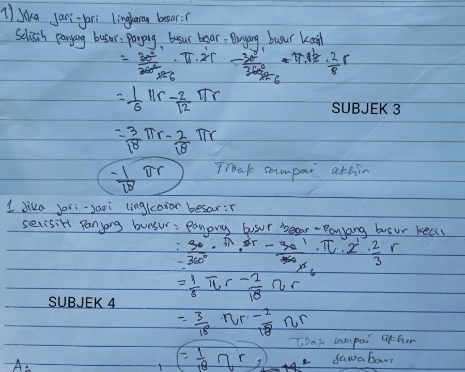 1) Jika jari-jari lingkaran besar: r
Selisih panjang busur = Panjang busur besar - Panjang busur kecil
= 30°/360° · π · 2r - 30°/360° · π · 2 · 2/3 r
= 1/6 πr - 2/12 πr
SUBJEK 3
= 3/18 πr - 2/18 πr
= 1/18 πr Tidak sampai akhir
1 Jika jari-jari lingkaran besar: r
selisih Panjang bunsur = Panjang busur besar - Panjang busur kecil
= 30/360° · π · 2r - 30/360 · π · 2 · 2/3 r
= 1/6 πr - 2/18 πr
SUBJEK 4
= 3/18 πr - 2/18 πr
Tidak sampai akhir
= 1/18 πr jawaban